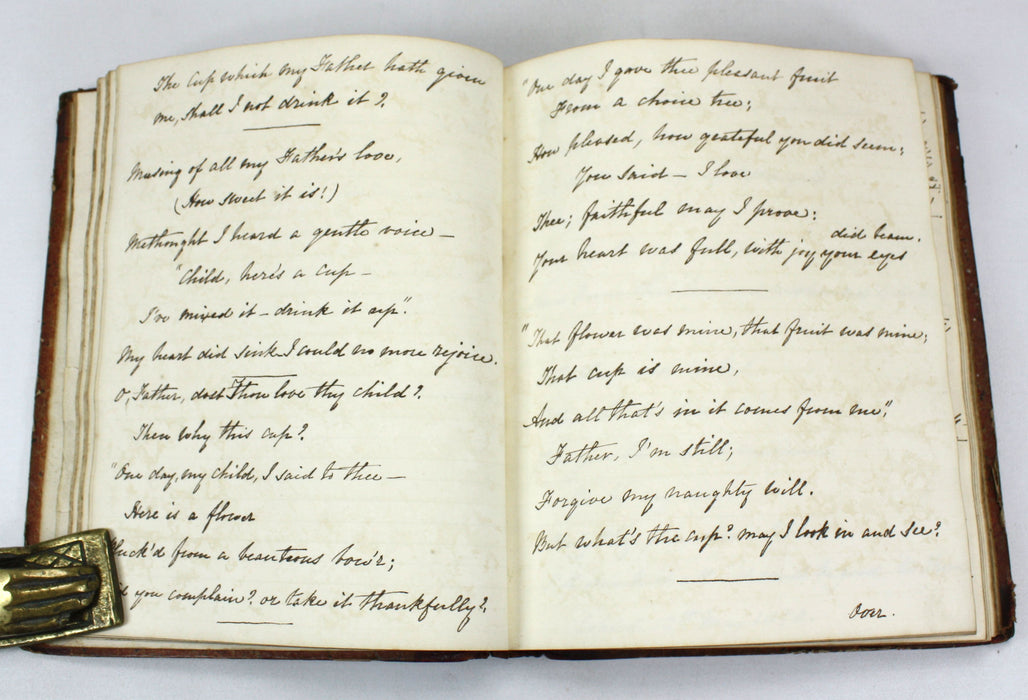 The Cup which my Father hath given
me, shall I not drink it?
Musing of all my Father's love,
(How sweet it is!)
Methought I heard a gentle voice —
"Child, here's a cup —
I've mixed it — drink it up".
My heart did sink I could no more rejoice.
O, Father, dost Thou love thy child?
Then why this cup?
"One day, my child, I said to thee —
Here is a flower
Pluck'd from a beauteous bow'r;
you complain? or take it thankfully?
"One day I gave thee pleasant fruit
From a choice tree;
How pleased, how grateful you did seem;
You said — I love
Thee; faithful may I prove:
did beam.
Your heart was full, with joy your eyes
"That flower was mine, that fruit was mine;
That cup is mine,
And all that's in it comes from me",
Father, I'm still;
Forgive my naughty will.
But what's the cup? may I look in and see?
Over.